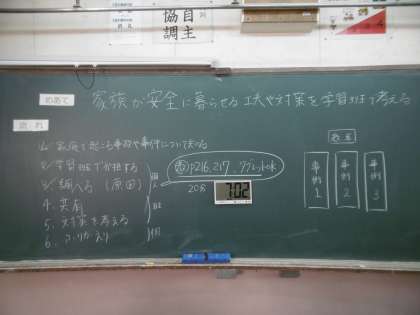 自主
協調
めあて
家族が安全に暮らせる工夫や対策を学習班で考える
流れ
1. 家庭で起こる事故や事件について知る
2. 学習班で分担する
3. 調べる(原因)
4. 共有
5. 対策を考える
6. ふりかえり
P216,217, タブレット
20分
7:02
黒板
事例1
事例2
事例3